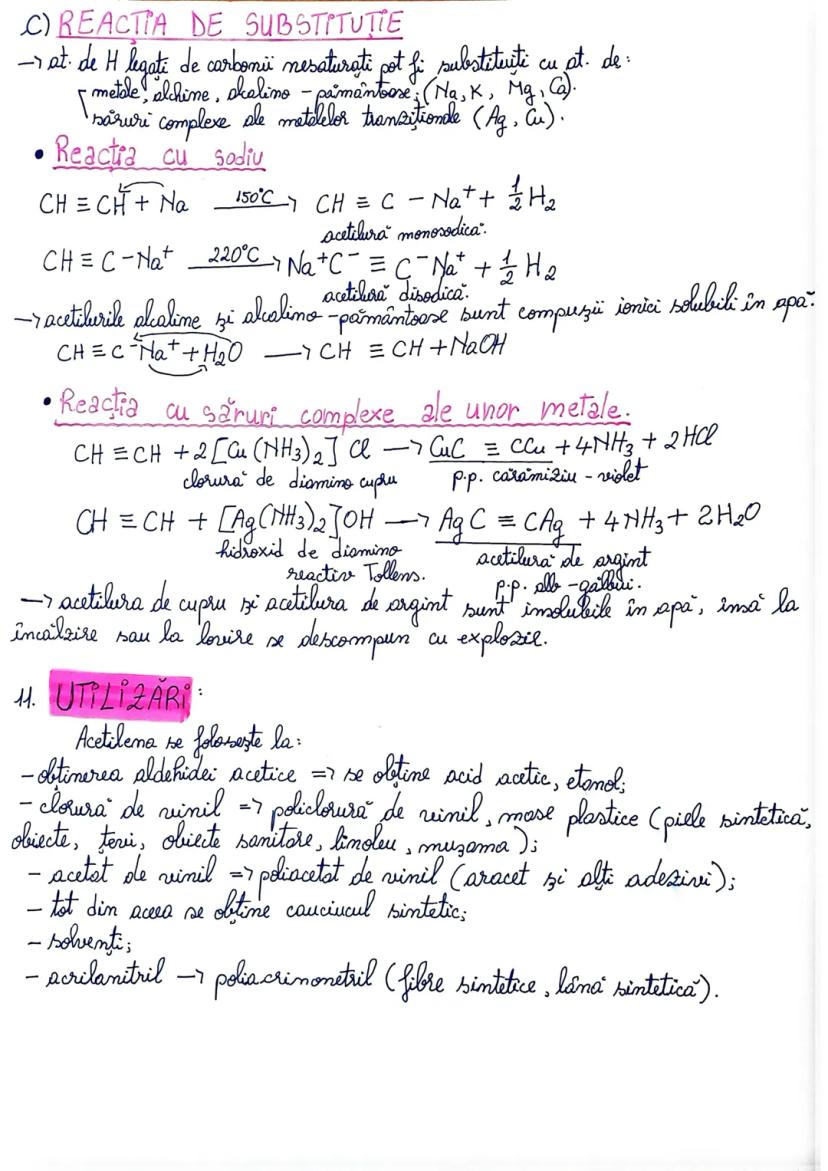 C) REACȚIA DE SUBSTITUȚIE
→ at. de H legați de carbonii nesaturați pot fi substituiți cu at. de:
- metale, alchine, alcalino - pământoase; (Na, K, Mg, Ca).
săruri complexe ale metalelor tranziționale (Ag, Cu).
• Reacția cu sodiu
CH ≡ CH + Na 150°C → CH ≡ C - Na⁺ + 1/2 H₂
acetilură monosodică.
CH ≡ C - Na⁺ 220°C → Na⁺C⁻ ≡ C⁻Na⁺ + 1/2 H₂
acetilură disodică.
→ acetilurile alcaline și alcalino - pământoase sunt compuși ionici solubili în apă.
CH ≡ C⁻Na⁺ + H₂O → CH ≡ CH + NaOH
• Reacția cu săruri complexe ale unor metale.
CH ≡ CH + 2[Cu(NH₃)₂] Cl → CuC ≡ CCu + 4NH₃ + 2HCl
clorură de diamino cupru p.p. cărămiziu - violet
CH ≡ CH + [Ag(NH₃)₂]OH → AgC ≡ CAg + 4NH₃ + 2H₂O
hidroxid de diamino acetilură de argint
reactiv Tollens. p.p. alb - gălbui.
→ acetilura de cupru și acetilura de argint sunt insolubile în apă, însă la
încălzire sau la lovire se descompun cu explozie.
11. UTILIZĂRI:
Acetilena se folosește la:
- obținerea aldehidei acetice => se obține acid acetic, etanol;
- clorură de vinil => policlorură de vinil, mase plastice (piele sintetică,
obiecte, țevi, obiecte sanitare, linoleu, mușama);
- acetat de vinil => poliacetat de vinil (aracet și alți adezivi);
- tot din aceea se obține cauciucul sintetic;
- solvenți;
- acrilanitril → poliacrimonetril (fibre sintetice, lână sintetică).